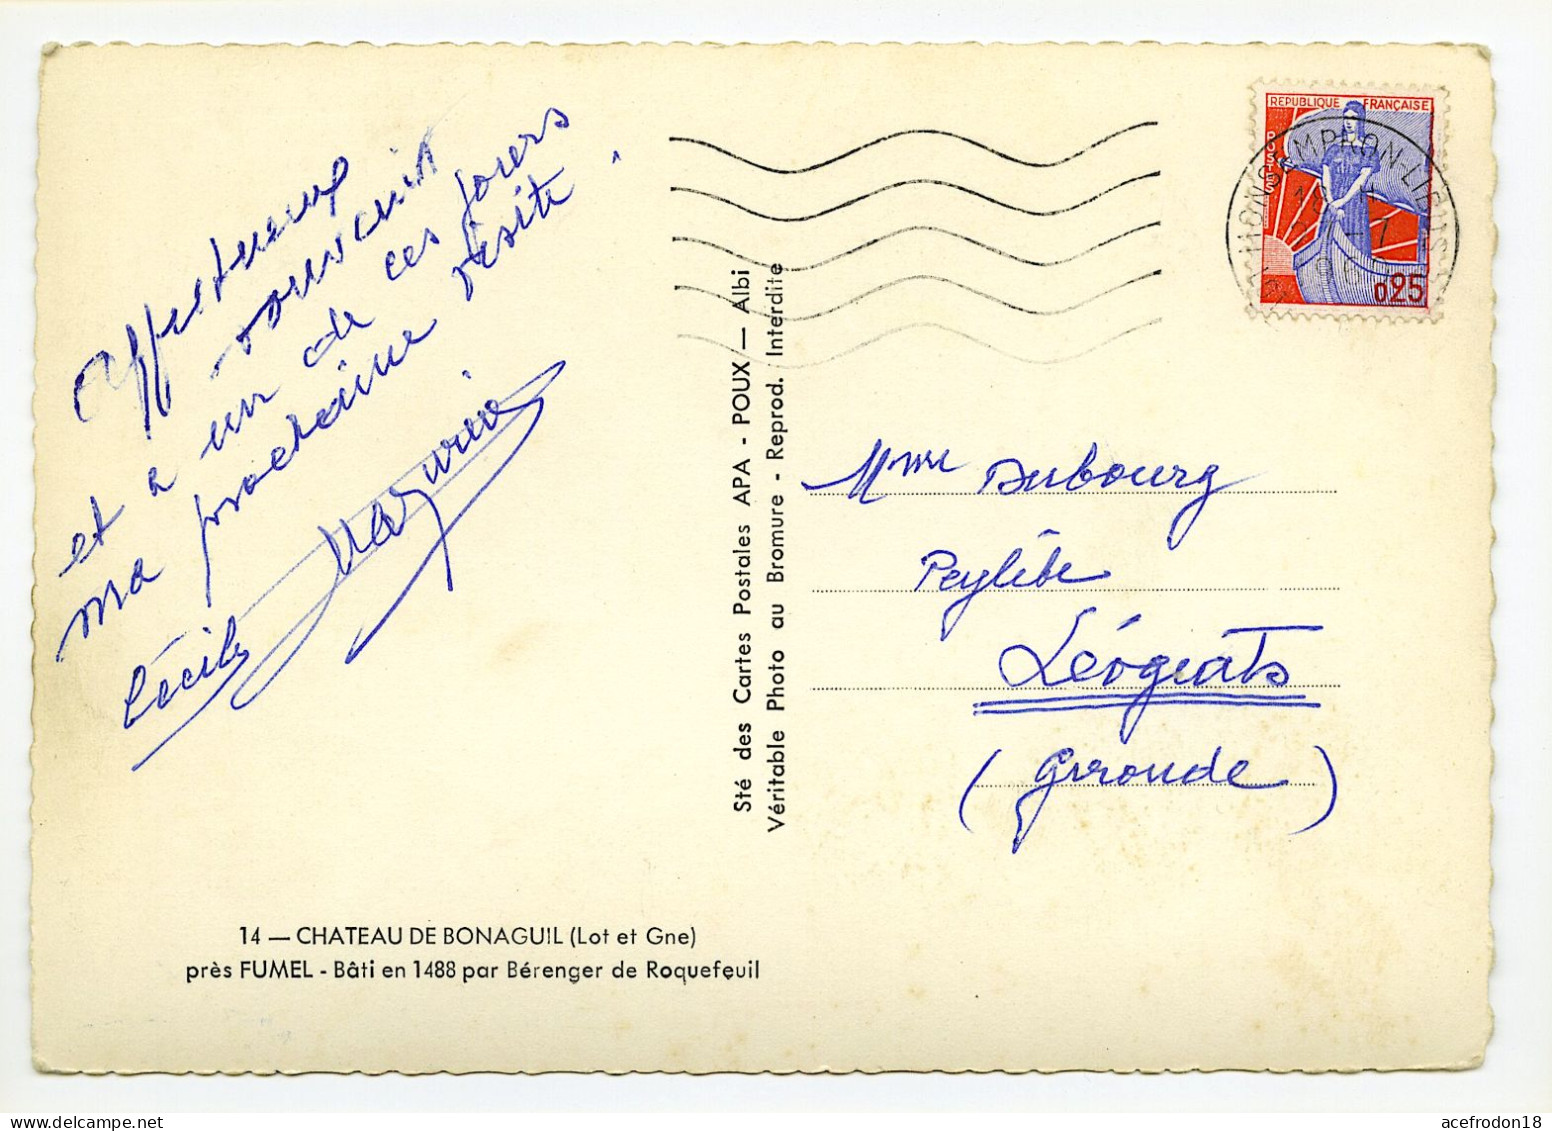 Affectueux
souvenir
et a un de ces jours
ma prochaine visite.
Cécile
14 — CHATEAU DE BONAGUIL (Lot et Gne)
près FUMEL - Bâti en 1488 par Bérenger de Roquefeuil
Sté des Cartes Postales APA - POUX — Albi
Véritable Photo au Bromure - Reprod. Interdite
REPUBLIQUE FRANÇAISE
POSTES
0,25
MONSEMPRON-LIBOS
Mme Dubourg
Peylébe
Léogeats
(Gironde)
acefrodon18